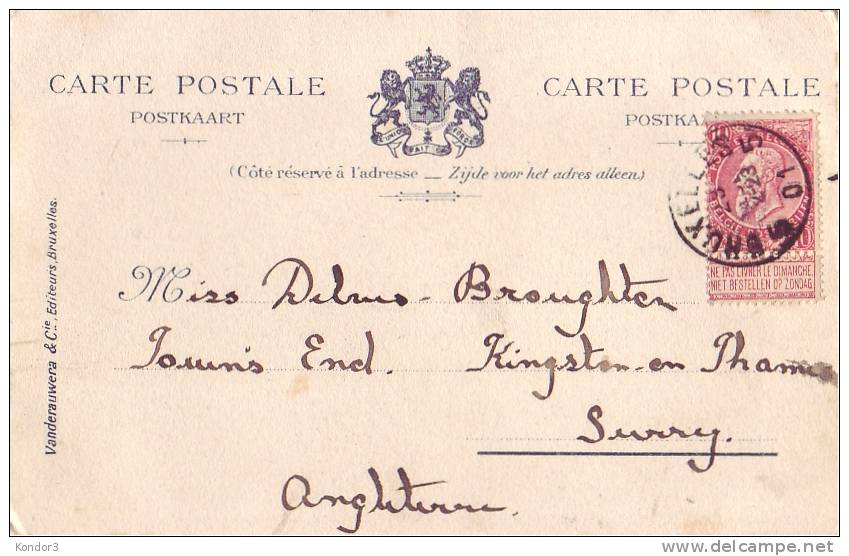 CARTE POSTALE
POSTKAART
CARTE POSTALE
POSTKAA
L'UNION FAIT LA FORCE
(Côté réservé à l'adresse _ Zijde voor het adres alleen.)
BRUXELLES
5
01
NE PAS LIVRER LE DIMANCHE
NIET BESTELLEN OP ZONDAG
Miss Delves-Broughten
End. Kingston-on Thames
Surrey.
Angleterre.
Vanderauwera & Cie. Editeurs, Bruxelles.
Kondor3
delcampe.net